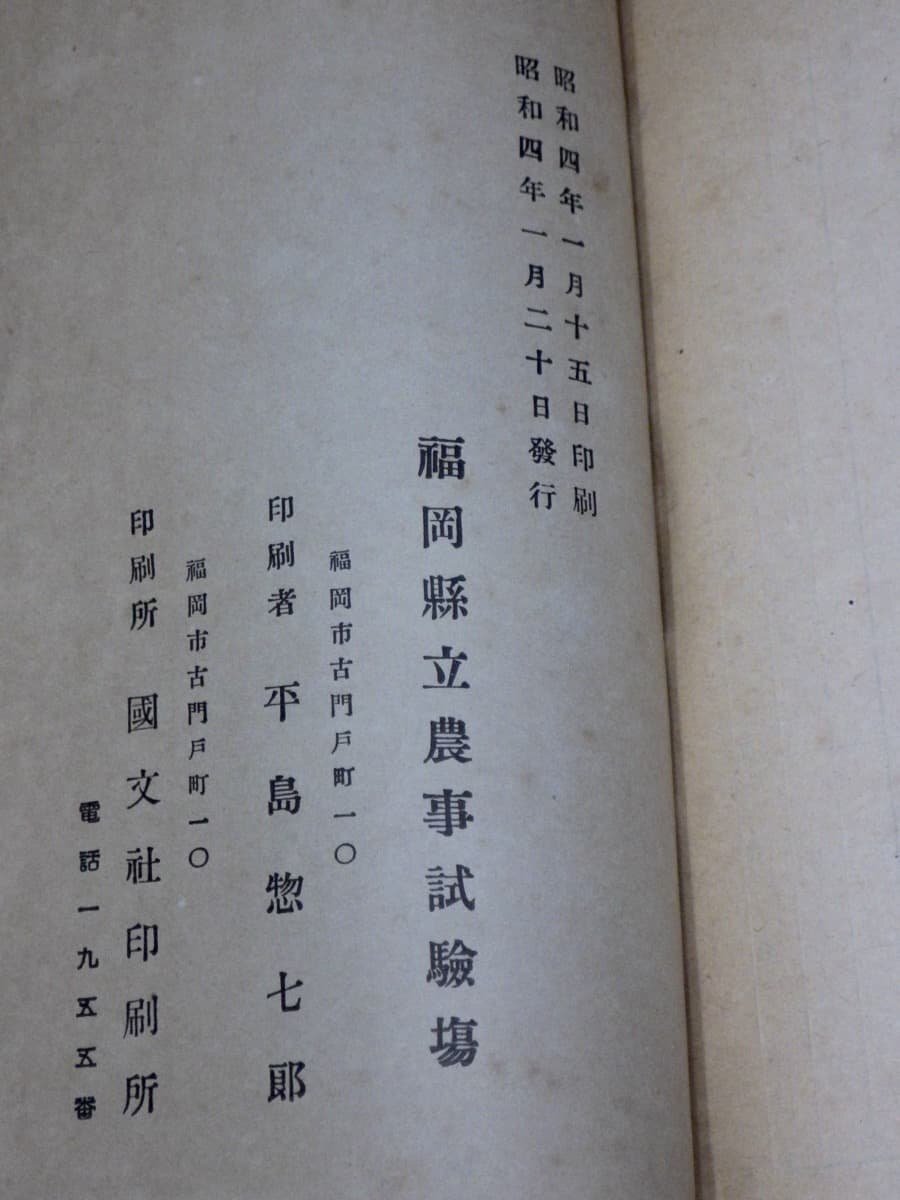 昭和四年一月十五日印刷
昭和四年一月二十日發行
福岡縣立農事試驗塲
福岡市古門戸町一〇
印刷者 平島惣七郎
福岡市古門戸町一〇
印刷所 國文社印刷所
電話一九五五番